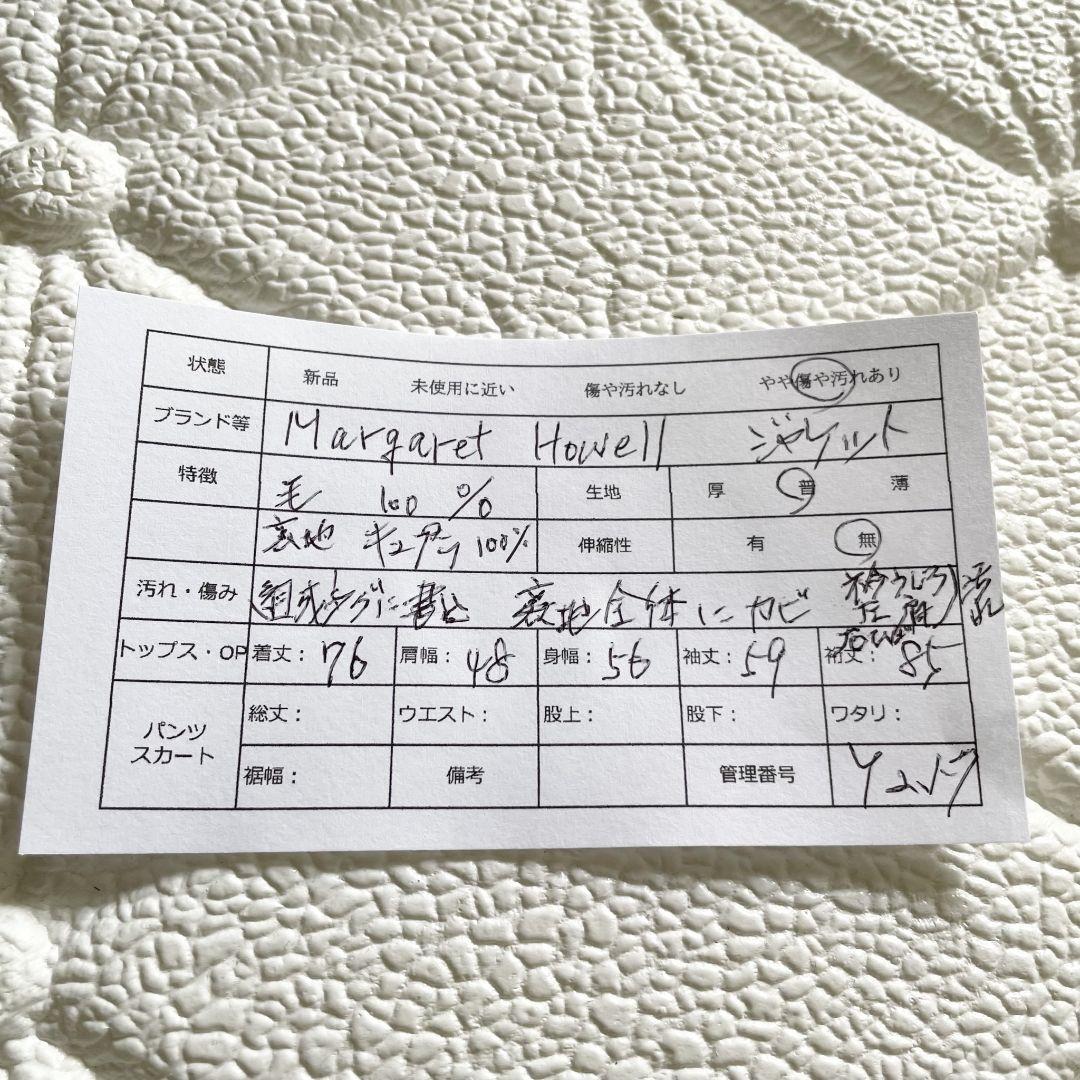 状態 新品 未使用に近い 傷や汚れなし やや傷や汚れあり
ブランド等 Margaret Howell ジャケット
特徴 毛 100% 生地 厚 普 薄
裏地 キュプラ 100% 伸縮性 有 無
汚れ・傷み 組成タグに書込 裏地全体にカビ 衿うしろ 汚れ
左肩
右ひじ
トップス・OP 着丈:76 肩幅:48 身幅:56 袖丈:59 裄丈:85
パンツ スカート 総丈: ウエスト: 股上: 股下: ワタリ:
裾幅: 備考 管理番号